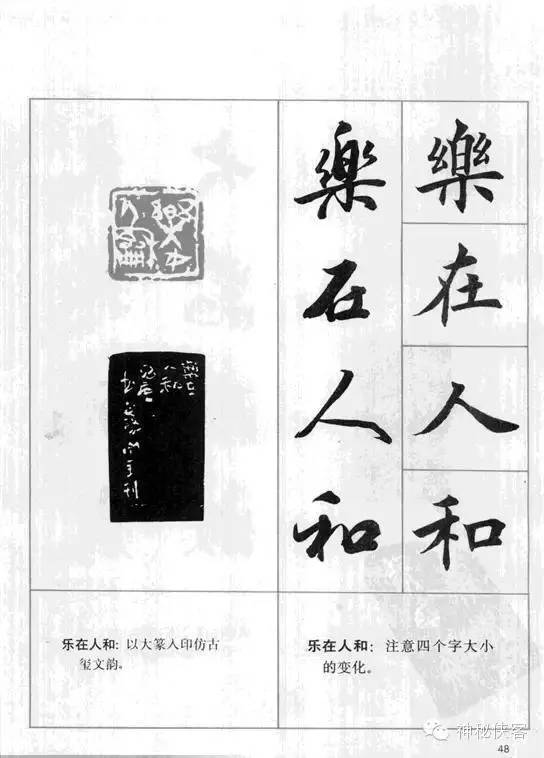 樂在人和
樂在人和
樂在
人和
乐在人和：以大篆入印仿古
玺文韵。
乐在人和：注意四个字大小
的变化。
神秘侠客
48